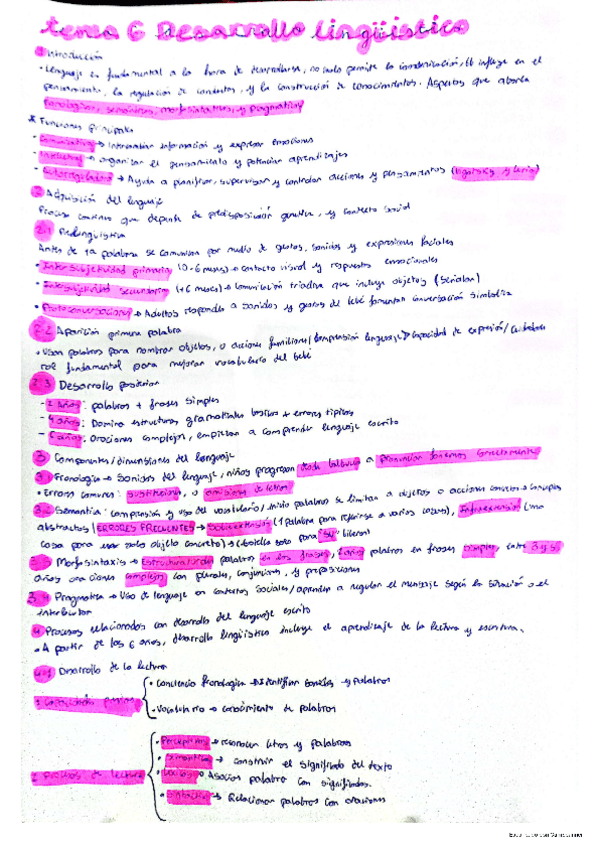 tema 6 Desarrollo lingüístico
1 Introducción
• Lenguaje es fundamental a la hora de desarrollarse, no solo permite la comunicación, tb influye en el
pensamiento, la regulación de conductas, y la construcción de conocimientos. Aspectos que aborda
fonológicos, semánticos, morfosintácticos, y pragmáticos
* Funciones principales
- Comunicativa → Intercambiar información y expresar emociones
- Intelectual → organizar el pensamiento y potenciar aprendizajes
- Autorreguladora → Ayuda a planificar, supervisar y controlar acciones y pensamientos (Vigotsky y Luria)
2 Adquisición del lenguaje
Proceso continuo que depende de predisposición genética, y contexto social
2.1 Prelingüística
Antes de 1ª palabra se comunican por medio de gestos, sonidos y expresiones faciales
• Intersubjetividad primaria (0-6 meses) → contacto visual y respuestas emocionales
• Intersubjetividad secundaria (+6 meses) → Comunicación triádica que incluye objetos (señalan)
• Protoconversaciones → Adultos responden a sonidos y gestos del bebé fomentan conversación simbólica
2.2 Aparición primera palabra
• Usan palabras para nombrar objetos, o acciones familiares/ Comprensión lenguaje > capacidad de expresión/
rol fundamental para mejorar vocabulario del bebé
2.3 Desarrollo posterior
- 2 años: palabras + frases simples
- 4 años: Domina estructuras gramaticales básicas + errores típicos
- 6 años: Oraciones complejas, empiezan a comprender lenguaje escrito
3 Componentes/dimensiones del Lenguaje
3.1 Fonología → Sonidos del lenguaje, niños progresan desde balbuceo a pronunciar fonemas correctamente
• Errores comunes: sustituciones, u omisiones de letras
3.2 Semántica: comprensión y uso del vocabulario/ Inicio palabras se limitan a objetos o acciones concretas → conceptos
abstractos/ ERRORES FRECUENTES → Sobreextensión (1 palabra para referirse a varias cosas), Infraextensión (una
cosa para usar solo objeto concreto) → (botella solo para "su" biberón)
3.3 Morfosintaxis → Estructuración palabras en las frases, 2 años palabras en frases simples, entre 3 y 5
años oraciones complejas con plurales, conjunciones, y preposiciones
3.4 Pragmática → Uso de lenguaje en contextos sociales/ aprenden a regular el mensaje según la situación o el
interlocutor
4 Procesos relacionados con desarrollo del lenguaje escrito
• A partir de los 6 años, desarrollo lingüístico incluye el aprendizaje de la lectura y escritura.
4.1 Desarrollo de la lectura
1 Capacidades previas
• Conciencia fonológica → Identificar sonidos y palabras
• Vocabulario → conocimiento de palabras
2 Procesos de lectura
• Perceptivos → reconocer letras y palabras
• Semántico → construir el significado del texto
• Léxico → Asocias palabra con significados.
• Sintáctico → Relacionar palabras con oraciones